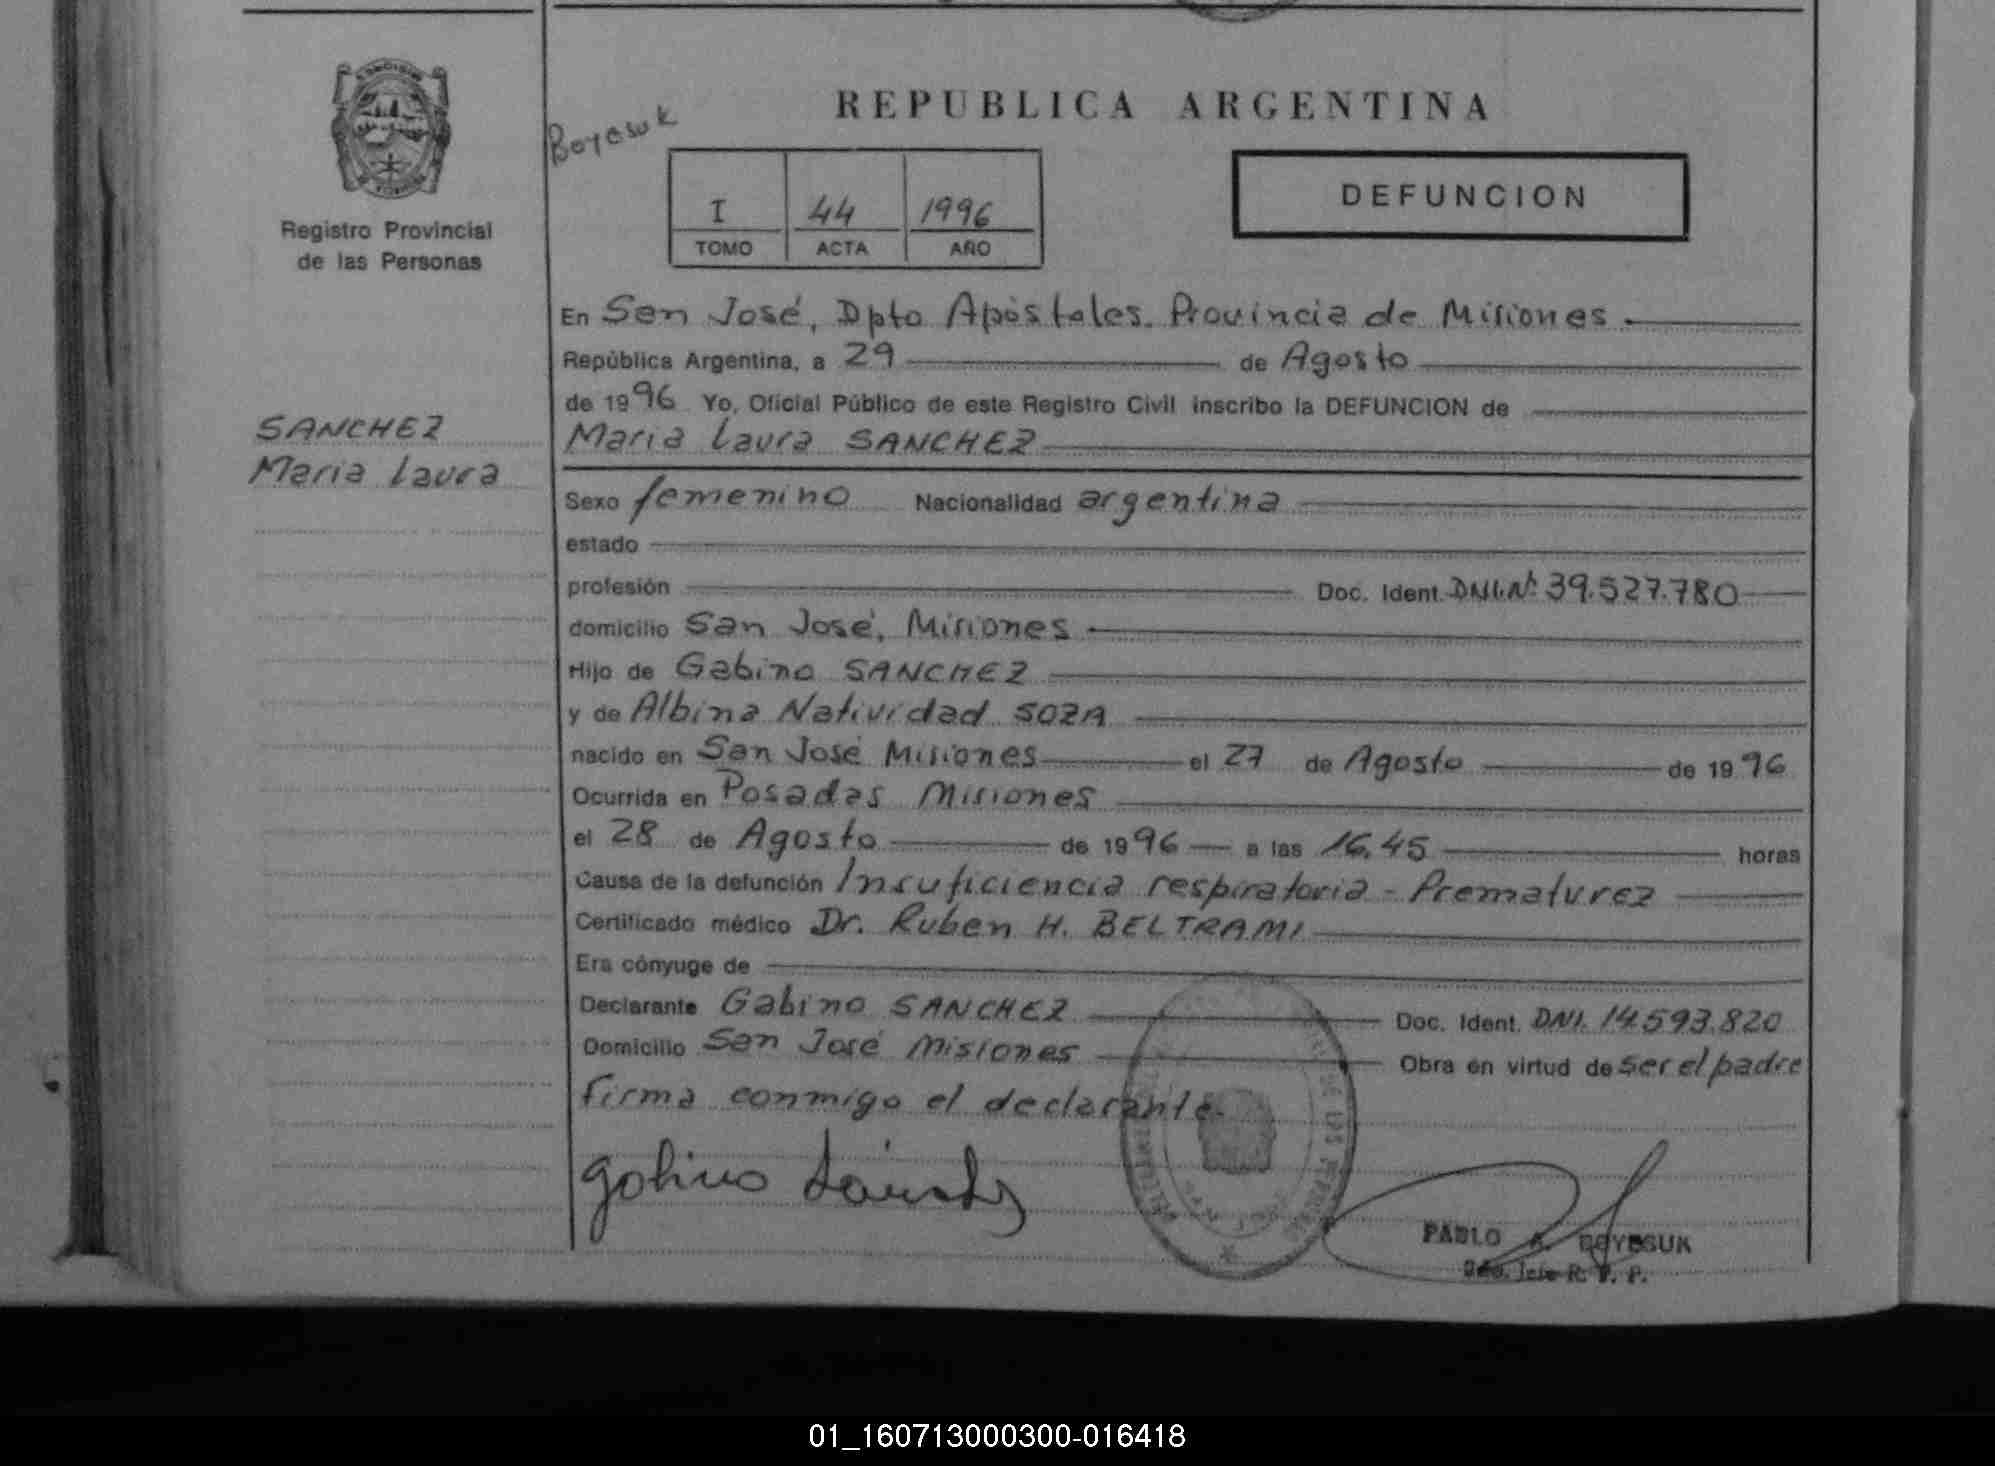 REPUBLICA ARGENTINA
Boyesuk
Registro Provincial
de las Personas
I 44 1996
TOMO ACTA AÑO
DEFUNCION
SANCHEZ
Maria Laura
En San José, Dpto Apóstoles. Provincia de Misiones.
República Argentina, a 29 de Agosto
de 1996 Yo, Oficial Público de este Registro Civil inscribo la DEFUNCION de
Maria Laura SANCHEZ
Sexo femenino Nacionalidad argentina
estado
profesión Doc. Ident. DNI.Nº 39.527.780
domicilio San José, Misiones
Hijo de Gabino SANCHEZ
y de Albina Natividad SOZA
nacido en San José Misiones el 27 de Agosto de 1996
Ocurrida en Posadas Misiones
el 28 de Agosto de 1996 a las 16,45 horas
Causa de la defunción Insuficiencia respiratoria - Prematurez
Certificado médico Dr. Ruben H. BELTRAMI
Era cónyuge de
Declarante Gabino SANCHEZ Doc. Ident. DNI. 14.593.820
Domicilio San José Misiones Obra en virtud de ser el padre
firma conmigo el declarante.
PABLO A. BOYESUK
R. P. P.
01_160713000300-016418